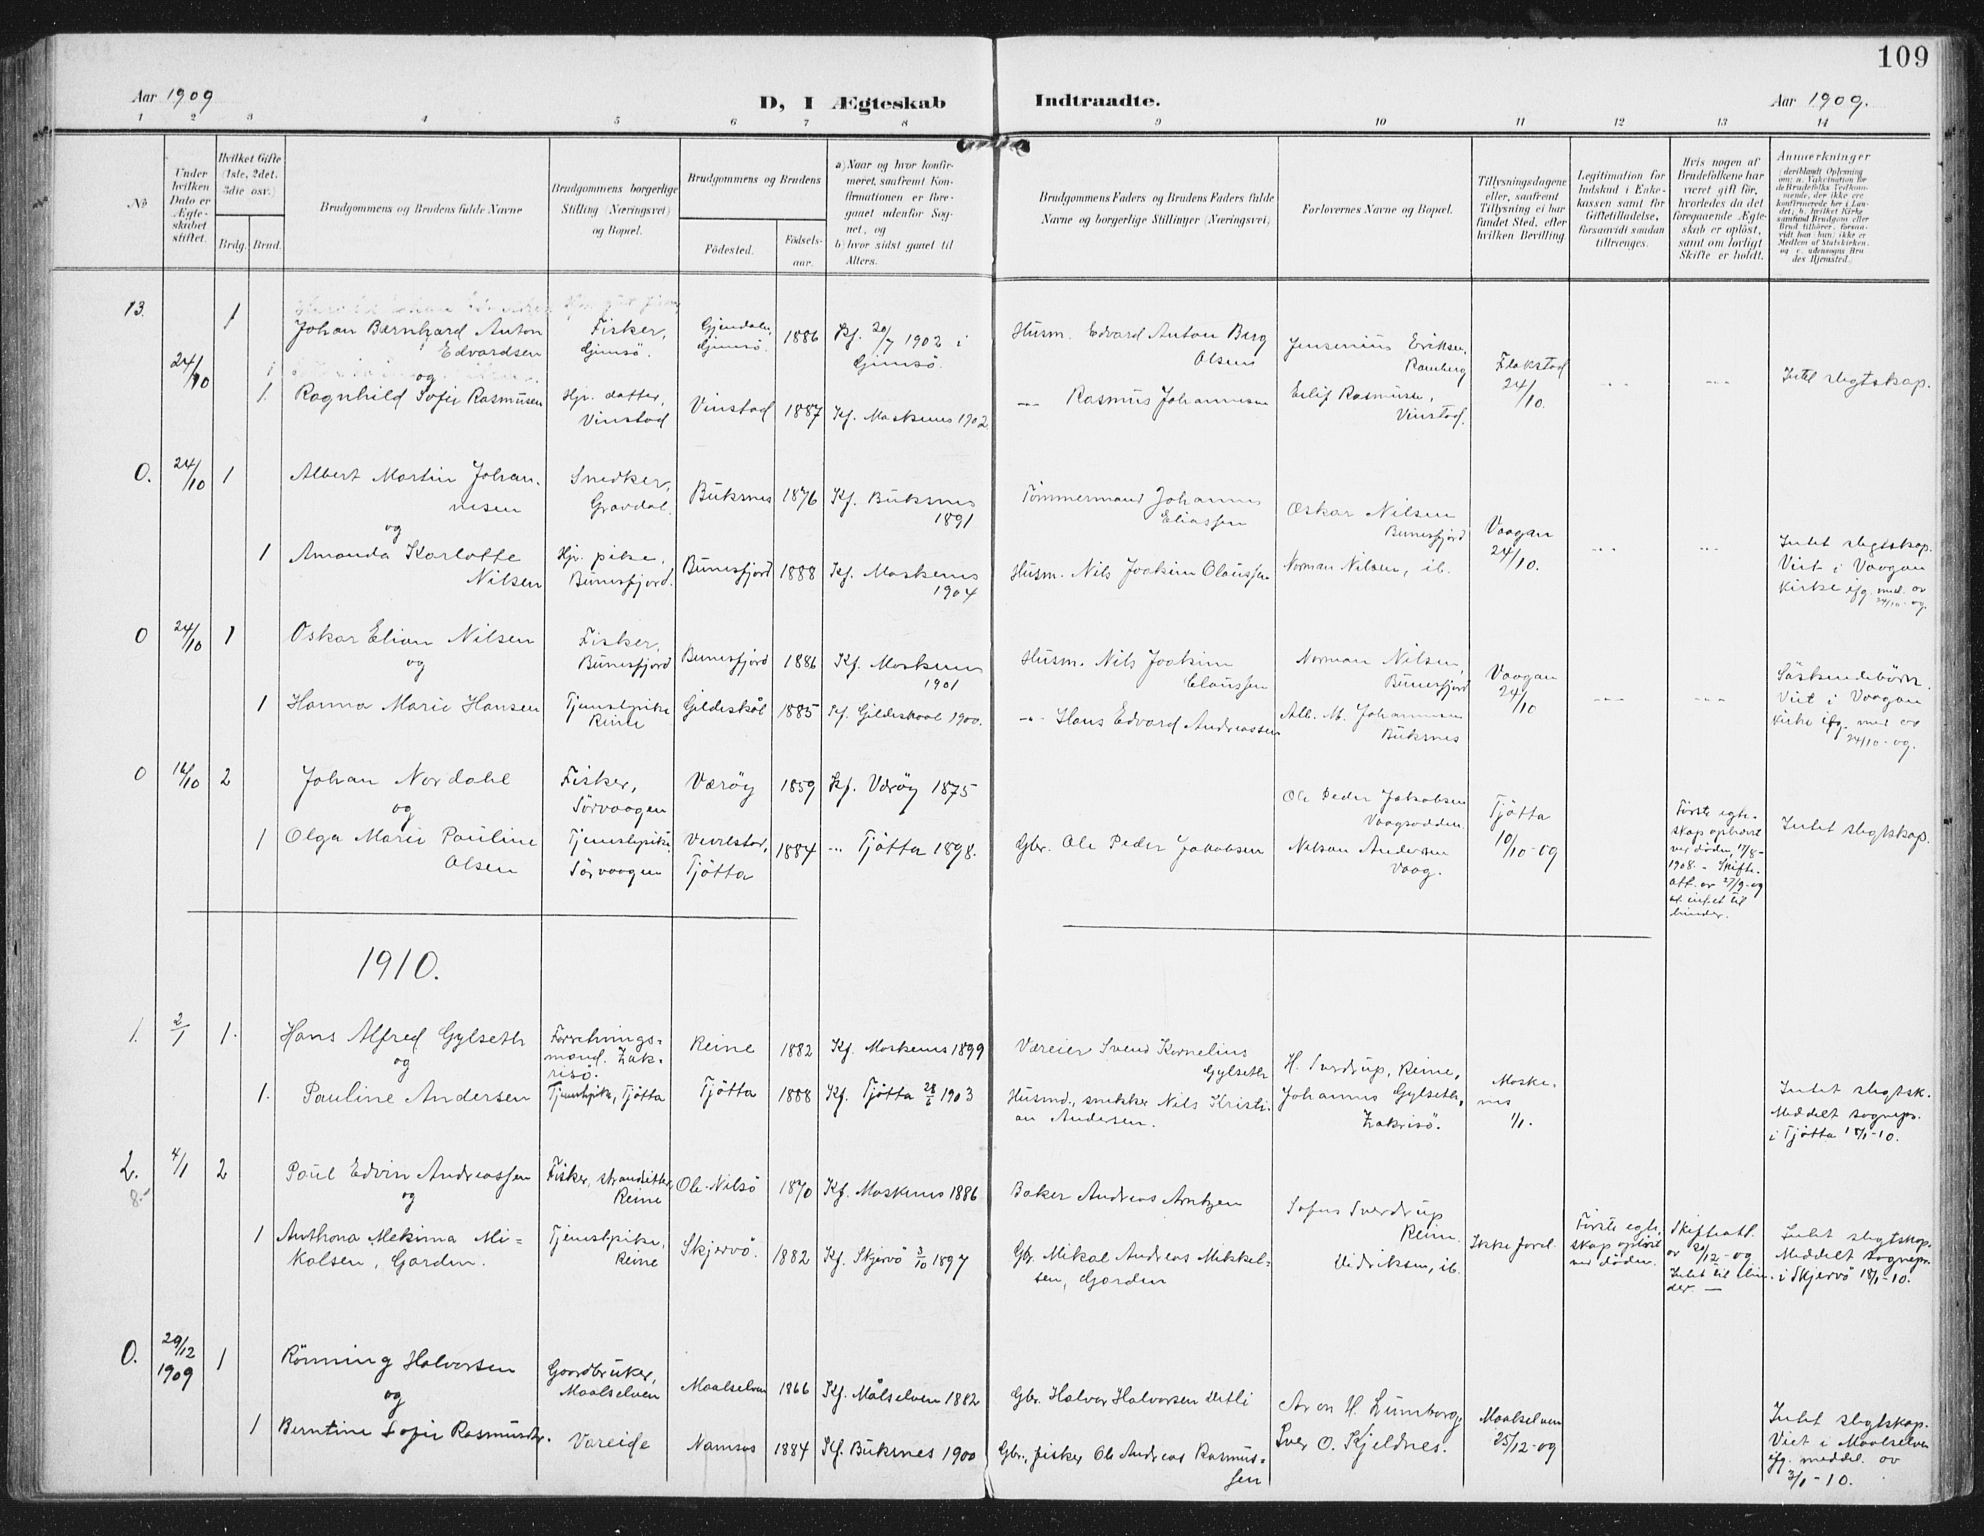 109
Aar 1909
D, I Ægteskab
Indtraadte.
Aar 1909.
1 2 3 4 5 6 7 8 9 10 11 12 13 14
No
Under hvilken Dato er Ægteskabet stiftet.
Hvilket Gifte (1ste, 2det, 3die osv.)
Brdg. Brud.
Brudgommens og Brudens fulde Navne
Brudgommens borgerlige Stilling (Næringsvei) og Bopæl.
Brudgommens og Brudens
Fødested.
Fødselsaar.
a) Naar og hvor konfirmeret, saafremt Konfirmationen er foregaaet udenfor Sognet, og
b) hvor sidst gaaet til Alters.
Brudgommens Faders og Brudens Faders fulde Navne og borgerlige Stillinger (Næringsvei)
Forlovernes Navne og Bopæl.
Tillysningsdagene eller, saafremt Tillysning ei har fundet Sted, efter hvilken Bevilling.
Legitimation for Indskud i Enkekassen samt for Giftetilladelse, forsaavidt saadan tiltrænges.
Hvis nogen af Brudefolkene har været gift før, hvorledes da det foregaaende Ægteskab er opløst, samt om lovligt Skifte er holdt.
Anmærkninger
13. 24/10 1
Johan Bernhard Anton Edvardsen
Fisker, Gimsö.
Gjimsö.
1886
Kf. 20/7 1902 i Gimsö.
Husm. Edvard Anton Berg Olsen
Jensenius Eriksen, Ramberg
Flakstad 24/10.
Intet slegtskap.
og
1. Ragnhild Sofie Rasmusen
Hp. datter, Vinstad
Vinstad
1887
Kf. Moskenes 1902
Rasmus Johannesen
Eilif Rasmussen, Vinstad.
0. 24/10 1
Albert Martin Johannesen
Snedker, Gravdal.
Buksnes
1876
Kf. Buksnes 1891
Tömmermand Johannes Eliassen
Oskar Nilsen Bunesfjord
Vaagan 24/10.
og
1 Amanda Karlotte Nilsen
Hp. pike, Bunesfjord.
Bunesfjord
1888
Kf. Moskenes 1904
Husm. Nils Joakim Claussen
Norman Nilsen, ib.
Intet slegtskap. Viet i Vaagan kirke ifg. med. av 24/10-09
0 24/10 1
Oskar Elian Nilsen
Fisker, Bunesfjord
Bunesfjord
1886
Kf. Moskenes 1901
Husm. Nils Joakim Claussen
Norman Nilsen, Bunesfjord
Vaagan 24/10
og
1 Hanna Marie Hansen
Tjenestpike Reine
Gildeskål
1885
Kf. Gildeskaal 1900.
Hans Edvard Andreassen
Alb. M. Johannesen Buksnes
Söskendebörn. Viet i Vaagan kirke ifg. med av 24/10-09.
0 16/10 2
Johan Nordahl
Fisker, Sörvaagen
Væröy
1859
Kf. Væröy 1875
Ole Peder Jakobsen Vaagsodden
Tjötta 10/10-09
Förste egteskap ophævet ved döden, 17/8-1908. Skifteatt. av 27/9-09 at intet til hinder.
Intet slegtskap.
og
1 Olga Marie Pauline Olsen
Tjenestpike, Sörvaagen
Tjötta
1884
Tjötta 1898.
Gbr. Ole Peder Jakobsen
Nelson Andersen Vaag.
1910.
1. 2/1 1.
Hans Alfred Gylseth
Forretningsmand. Zakrisö.
Reine
1882
Kf. Moskenes 1899
Væreier Svend Kornelius Gylseth
H. Sverdrup, Reine,
Moskenes 1/1.
og
1. Pauline Andersen
Tjenestpike, Tjötta
Tjötta
1888
Kf. Tjötta 28/6 1903
Husmd., snikker Nils Kristian Andersen.
Johannes Gylseth, Zakrisö.
Intet slegtsk. Meddelt sognepr. i Tjötta 18/1-10.
2. 4/1 2
8.-
Paul Edvin Andreassen
Fisker, strandsitter, Reine
Ole-Nilsö
1870
Kf. Moskenes 1886
Baker Andreas Arntzen
Sofus Sverdrup Reine
Ikke forel.
Förste egteskap oplöst ved döden.
Skifteatt. av 20/12-09 Intet til hinder.
og
1 Anthona Mekima Mikalsen, Garden.
Tjenestpike, Reine
Skjervö.
1882
Kf. Skjervö 3/10 1897
Gbr. Mikal Andreas Mikkelsen, Garden
Didriksen, ib.
Intet slegtskap. Meddelt sognepr. i Skjervö 18/1-10.
0. 29/12 1909 1
Rönning Halvorsen
Gaardbruker, Maalselven
Maalselven
1866
Kf. Målselven 1882
Gbr. Halvor Halvorsen
Aron H. Lumborg,
Maalselven 25/12-09
og
1 Berntine Sofie Rasmusdtr.
Vareide
Namsos
1884
Kf. Buksnes 1900
Gbr., fisker Ole Andreas Rasmussen
Iver O. Kjeldnes.
Intet slegtskap. Viet i Maalselven ifg. meddel. av 3/1-10.